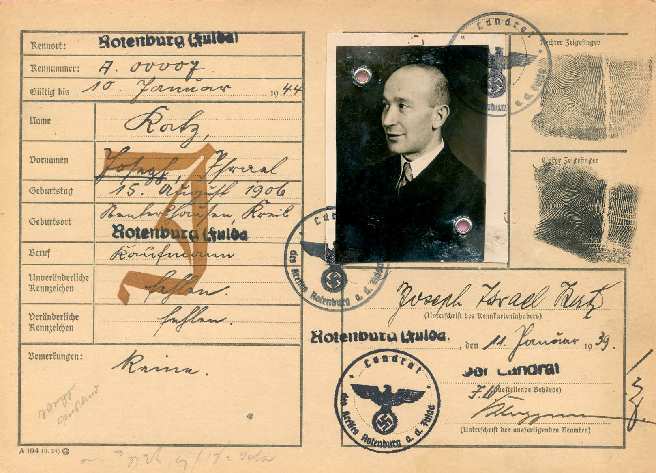 Kennort: Rotenburg (Fulda)
Kennummer: A. 00007
Gültig bis 10. Januar 1944
Name Katz,
Vornamen Joseph, Israel
Geburtstag 15. August 1906
Geburtsort Kreis
Rotenburg (Fulda
Beruf Kaufmann
Unveränderliche
Kennzeichen fehlen.
Veränderliche
Kennzeichen fehlen.
Bemerkungen: Keine.
J
A 104
Landrat
a. d. Fulda
Rechter Zeigefinger
Linker Zeigefinger
Landrat
des Kreises Rotenburg a. d. Fulda
Joseph Israel Katz
(Unterschrift des Kennkarteninhabers)
Rotenburg (Fulda, den 11. Januar 1939.
Der Landrat
(Ausstellende Behörde)
(Unterschrift des ausfertigenden Beamten)
Landrat
des Kreises Rotenburg a. d. Fulda